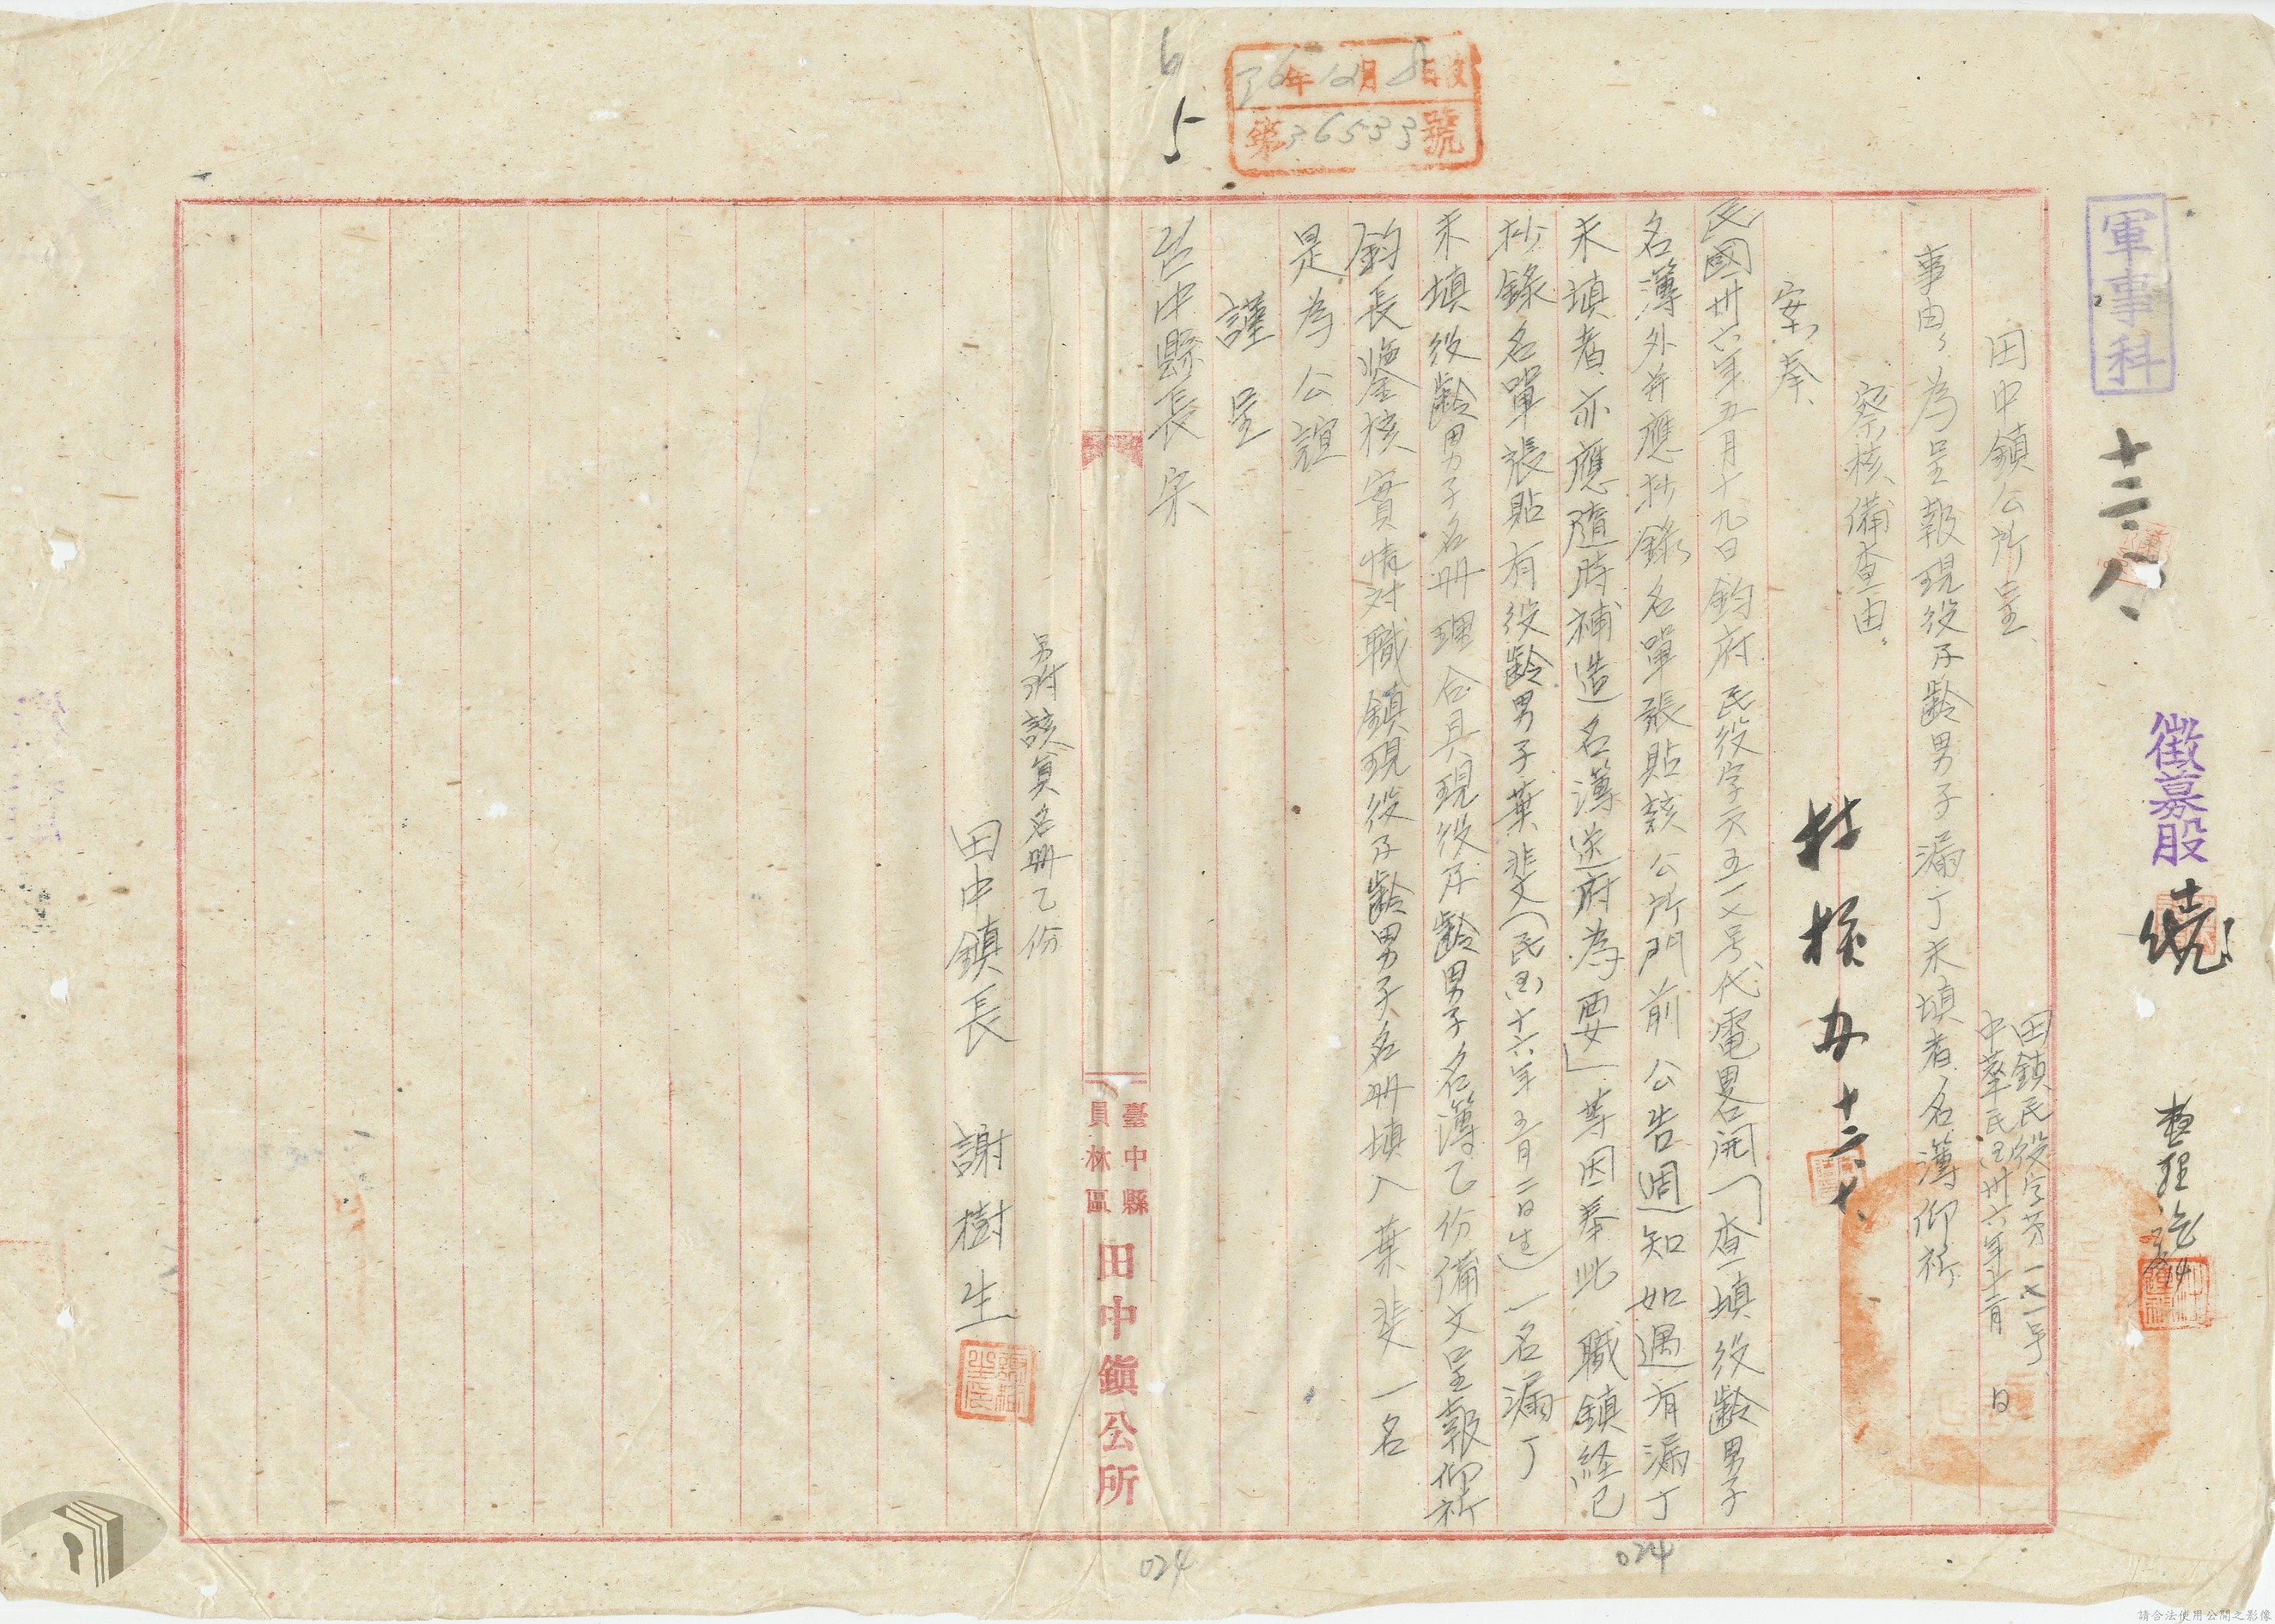 軍事科
十二、八、
徵募股
田中鎮公所呈、
田鎮民役字芳一七一号、
中華民国卅六年十二月 日
事由、為呈報現役及齡男子漏丁未填者名簿仰祈
察核備查由。
案奉、
民國卅六年五月十九日鈞府民役字天五一七号代電畧開「查填役齡男子
名簿外并應抄錄名單張貼該公所門前公告週知如遇有漏丁
未填者亦應隨時補造名簿送府為要」等因奉此職鎮経已
抄錄名單張貼有役齡男子葉斐文(民国十六年五月二日生)一名漏丁
未填役齡男子名册理合具現役及齡男子名簿乙份備文呈報仰祈
鈞長鑒核實情対職鎮現役及齡男子名册填入葉斐一名
是為公誼
謹呈
台中縣長宋
臺中縣
員林區
田中鎮公所
另附該員名册乙份
田中鎮長 謝樹生
36年12月8日收
第36533號
6
5
024
024
請合法使用公開之影像